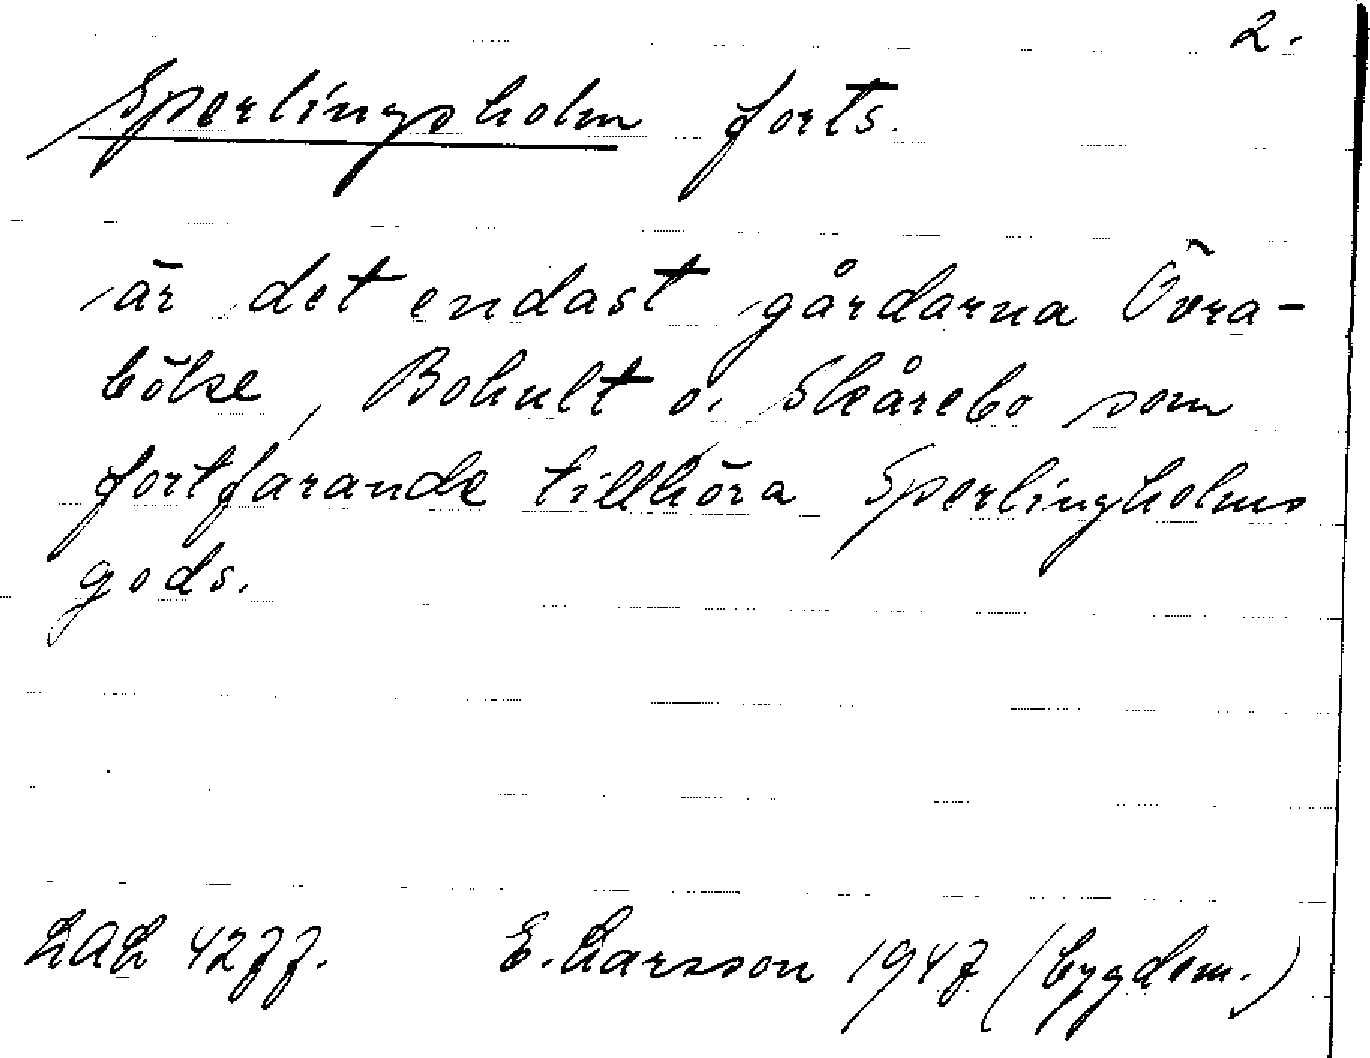 2.
Sperlingsholm forts.
är det endast gårdarna Övra-
böke, Bohult o. Skårebo som
fortfarande tillhöra Sperlingholms
gods.
LAL 4277. E. Larsson 1947 (bygdem.)